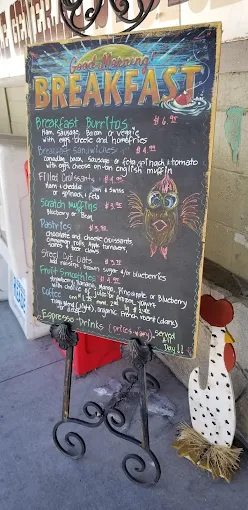 Good Morning!
BREAKFAST
Breakfast Burritos $6.95
Ham, Sausage, Bacon or veggie
with eggs cheese and homefries
Breakfast Sandwiches $4.95
Canadian bacon, Sausage or feta, spinach & tomato
with eggs cheese on an english muffin
Filled Croissants $4.95
Ham & cheddar
or spinach & feta
Scratch Muffins $3.75
Blueberry or Bran
Pastries
chocolate and cheese croissants
cinnamon rolls, apple turnovers
scones & bear claws
Steel Cut Oats
raisins, brown sugar &/or blueberries
Fruit Smoothies
Strawberry, Banana, Mango, Pineapple or Blueberry
with choice of juice or frozen yogurt
Coffee
organic, French roast (dark)
or decaf
Espresso drinks (prices vary) served
All
Day!!